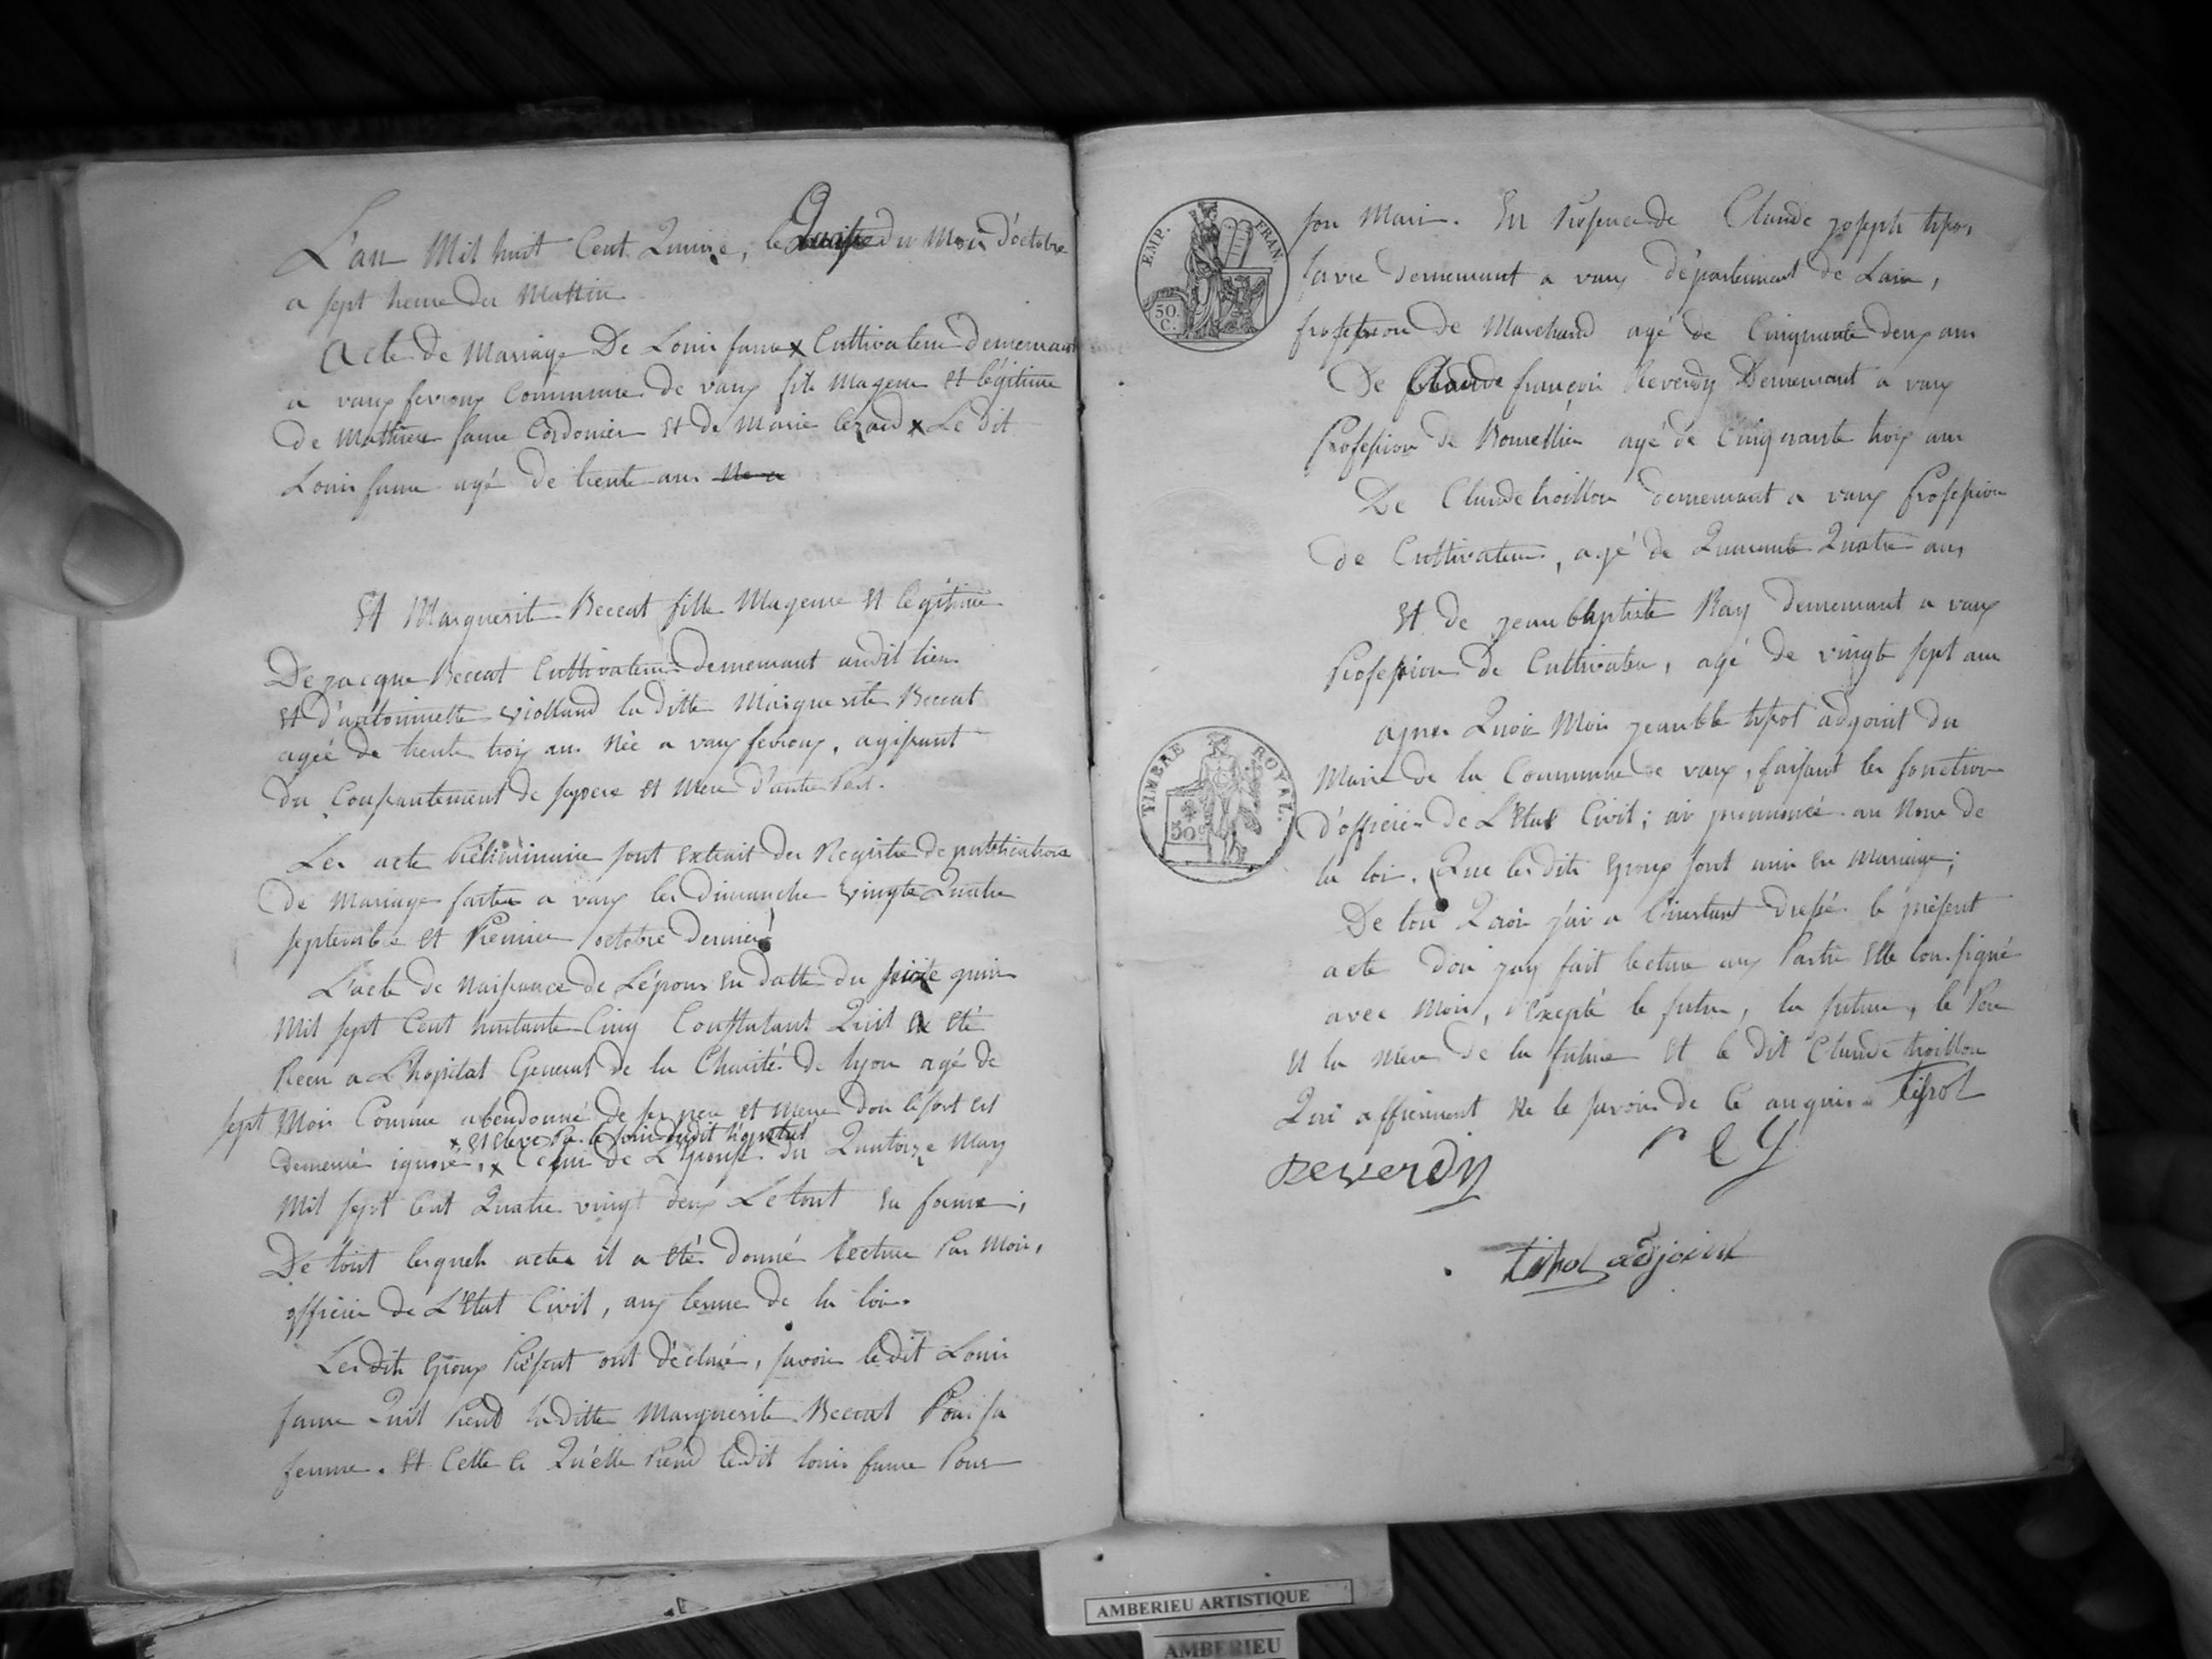 L'an Mil huit Cent Quinze, le du Mois d'octobre
a sept heure du Mattin
Acte de Mariage De Louis fame x Cultivateur Demeurant
a vaux fevroux Commune de vaux fils Mageur et légitime
de Mathieu fame Cordonier et de Marie x Le dit
Louis fame agé de trente ans
Et Marguerite Beccat fille Mageure et legitime
De jacque Beccat Cultivateur demeurant audit lieu
et d'antoinette violland la ditte Marguerite Beccat
agée de trente troix ans Née a vaux fevroux, agissant
du Consantement de ses pere et Mere d'autre Part.
Les acte Préliminaire sont extrait des Registre de publications
de Mariage faites a vaux les Dimanche vingte Quatre
septembre et Premier octobre dernier
L'acte de Naissance de L'époux en datte du seize juin
Mil sept Cent huitante Cinq Constatant Quil a été
Recu a L'hopital General de la Charité de lyon agé de
sept Mois Comme abendonné de ses pere et Mere don le sort est
x et élevé Par le soin dudit hopital
demeuré ignoré, x Celui de L'épouse du Quatorze Mars
Mil sept Cent Quatre vingt deux Le tout en forme;
De tout lesquels actes il a été donné lecture Par Moi,
officier de L'état Civil, aux terme de la loi.
Les dits époux Présent ont déclaré, savoir le dit Louis
fame Quil Prend la ditte Marguerite Beccat Pour sa
femme. et Celle Ci Qu'elle Prend le dit louis fame Pour
EMP. FRAN.
50. C.
son Mari. En Présence de Claude joseph
demeurant a vaux département de Lain,
profession de Marchand agé de Cinquante deux ans
De Claude françois Reverdy Demeurant a vaux
Profession de Bourellier agé de Cinquante troix ans
De Claude troillon demeurant a vaux Profession
de Cultivateur, agé de Quarante Quatre ans
Et de jean Baptiste Ray demeurant a vaux
Profession de Cultivateur, agé de vingt sept ans
TIMBRE ROYAL.
50
apres Quoi Moi jean bte tissot adjoint du
Maire de la Commune de vaux, faisant les fonction
d'officier de L'état Civil; ai prononcé au Nom de
la loi. Que les dits époux sont unis en Mariage;
De tou Quoi j'ai a L'instant dressé le présent
acte don jay fait lecture aux Partie elle Con signé
avec Moi, éxcepté le futur, la future, le Pere
et la Mere de la future et le dit Claude troillon
Qui affirment Ne le savoir de Ce anquis. tissot
reverdy rey
tissot adjoint
AMBERIEU ARTISTIQUE
AMBERIEU